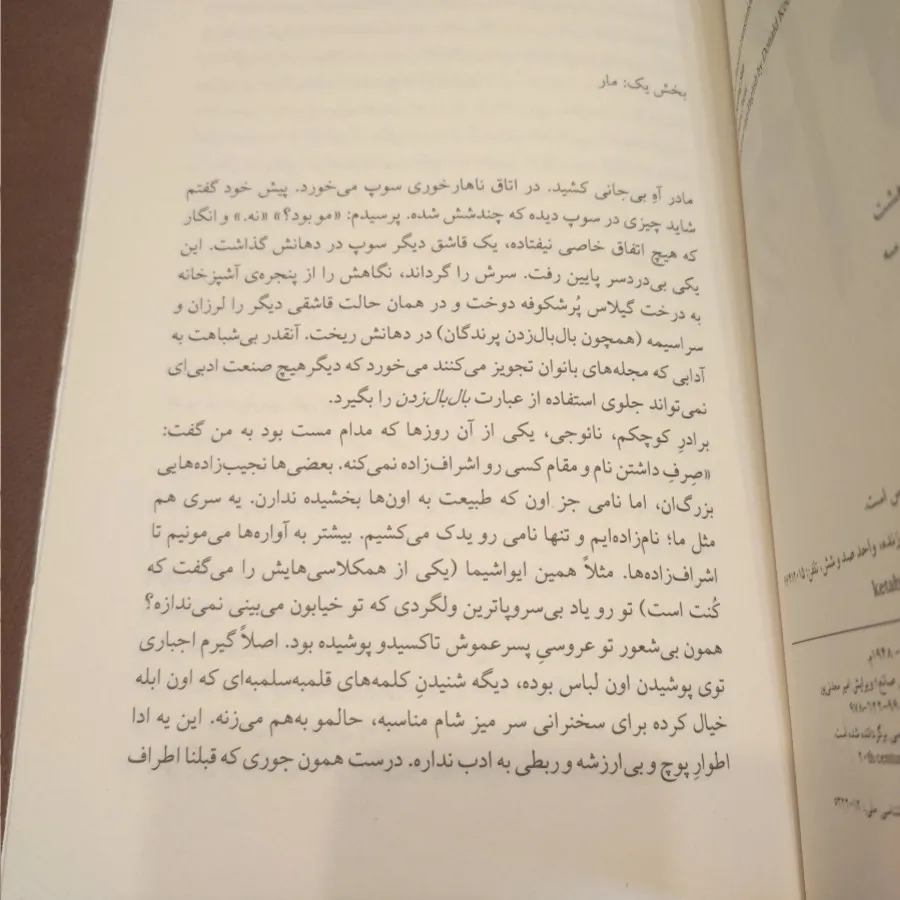 بخش یک: مار
مادر آهِ بی‌جانی کشید. در اتاق ناهارخوری سوپ می‌خورد. پیش خود گفتم
شاید چیزی در سوپ دیده که چندشش شده. پرسیدم: «مو بود؟» «نه.» و انگار
که هیچ اتفاق خاصی نیفتاده، یک قاشق دیگر سوپ در دهانش گذاشت. این
یکی بی‌دردسر پایین رفت. سرش را گرداند، نگاهش را از پنجره‌ی آشپزخانه
به درخت گیلاس پُرشکوفه دوخت و در همان حالت قاشقی دیگر را لرزان و
سراسیمه (همچون بال‌بال‌زدن پرندگان) در دهانش ریخت. آنقدر بی‌شباهت به
آدابی که مجله‌های بانوان تجویز می‌کنند می‌خورد که دیگر هیچ صنعت ادبی‌ای
نمی‌تواند جلوی استفاده از عبارت بال‌بال‌زدن را بگیرد.
برادرِ کوچکم، نائوجی، یکی از آن روزها که مدام مست بود به من گفت:
«صِرفِ داشتن نام و مقام کسی رو اشراف‌زاده نمی‌کنه. بعضی‌ها نجیب‌زاده‌هایی
بزرگ‌ان، اما نامی جز اون که طبیعت به اون‌ها بخشیده ندارن. یه سری هم
مثل ما؛ نام‌زاده‌ایم و تنها نامی رو یدک می‌کشیم. بیشتر به آواره‌ها می‌مونیم تا
اشراف‌زاده‌ها. مثلاً همین ایواشیما (یکی از همکلاسی‌هایش را می‌گفت که
کُنت است) تو رو یاد بی‌سروپاترین ولگردی که تو خیابون می‌بینی نمی‌ندازه؟
همون بی‌شعور تو عروسیِ پسرعموش تاکسیدو پوشیده بود. اصلاً گیرم اجباری
توی پوشیدن اون لباس بوده، دیگه شنیدنِ کلمه‌های قلمبه‌سلمبه‌ای که اون ابله
خیال کرده برای سخنرانی سر میز شام مناسبه، حالمو به‌هم می‌زنه. این یه ادا
اطوارِ پوچ و بی‌ارزشه و ربطی به ادب نداره. درست همون جوری که قبلنا اطراف
by Donald
است
واحد صد و شش، تلفن:
ketab
۱۹۴۸م.
20th